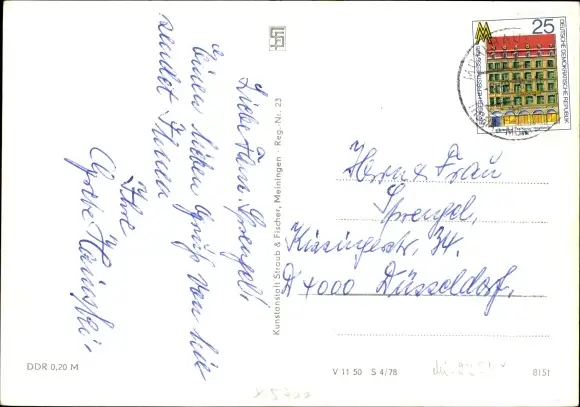 Liebe Frau Sprengel,
einen lieben Gruß von hie
sendet Ihnen
Ihre
Herrn & Frau
Sprengel,
Kissingerstr. 34.
D 4000 Düsseldorf,
25
DEUTSCHE DEMOKRATISCHE REPUBLIK
Kunstanstalt Straub & Fischer, Meiningen · Reg.-Nr. 23
DDR 0,20 M
V 11 50 S 4/78
8151